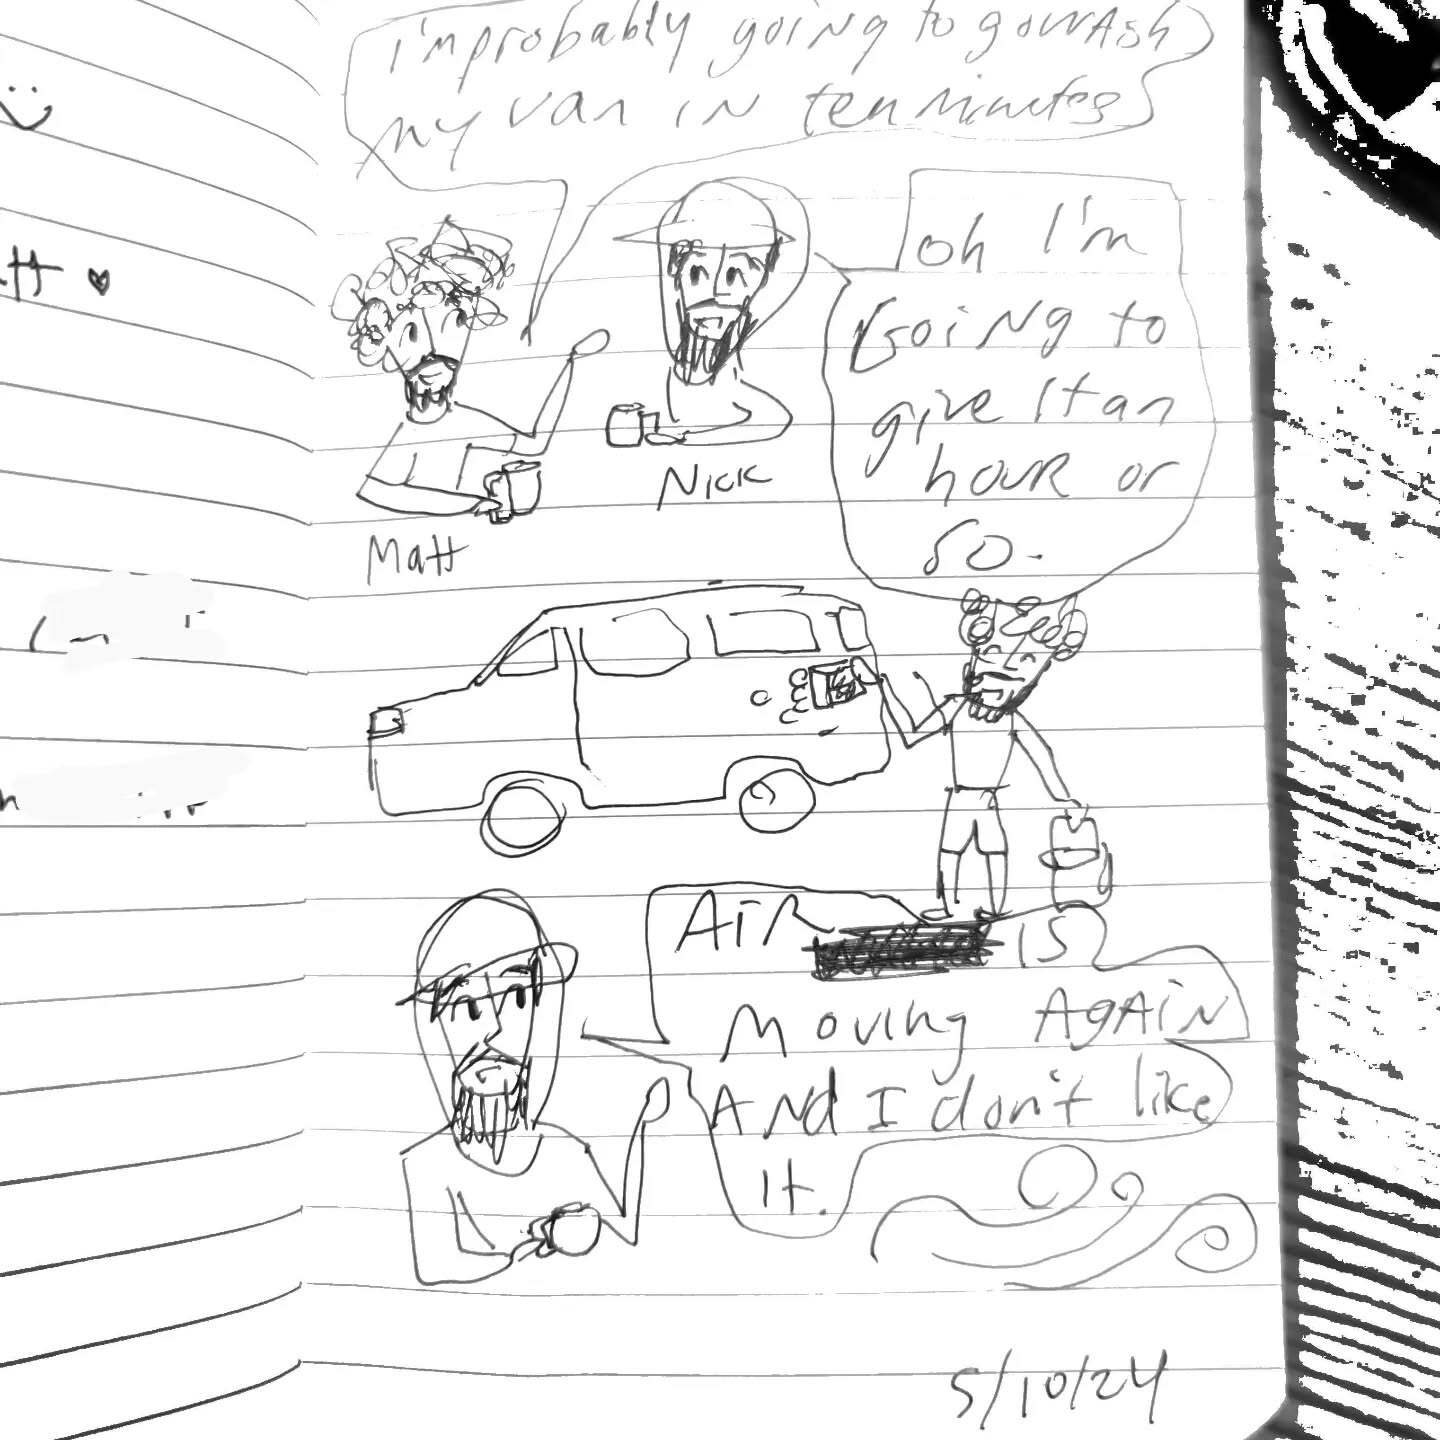 i'm probably going to go wash
my van in ten minutes
oh I'm
Going to
give it an
hour or
so.
Nick
Matt
AIR
is
Moving Again
And I don't like
it.
5/10/24